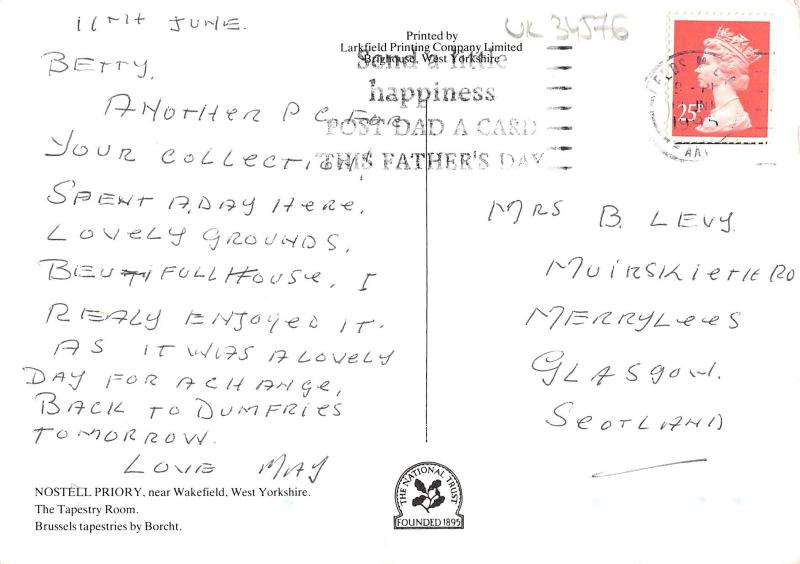 11TH JUNE.
BETTY,
ANOTHER P.C. FOR
YOUR COLLECTION!
SPENT A DAY HERE.
LOVELY GROUNDS,
BEUTIFULL HOUSE, I
REALY ENJOYED IT.
AS IT WAS A LOVELY
DAY FOR A CHANGE,
BACK TO DUMFRIES
TOMORROW.
LOVE MAY
NOSTELL PRIORY, near Wakefield, West Yorkshire.
The Tapestry Room.
Brussels tapestries by Borcht.
Printed by
Larkfield Printing Company Limited
Brighouse, West Yorkshire
UK 34576
Send a little
happiness
POST DAD A CARD
THIS FATHER'S DAY
25
1995
MRS B. LEVY.
MUIRSKIETH RO
MERRYLEES
GLASGOW.
SCOTLAND
THE NATIONAL TRUST
FOUNDED 1895